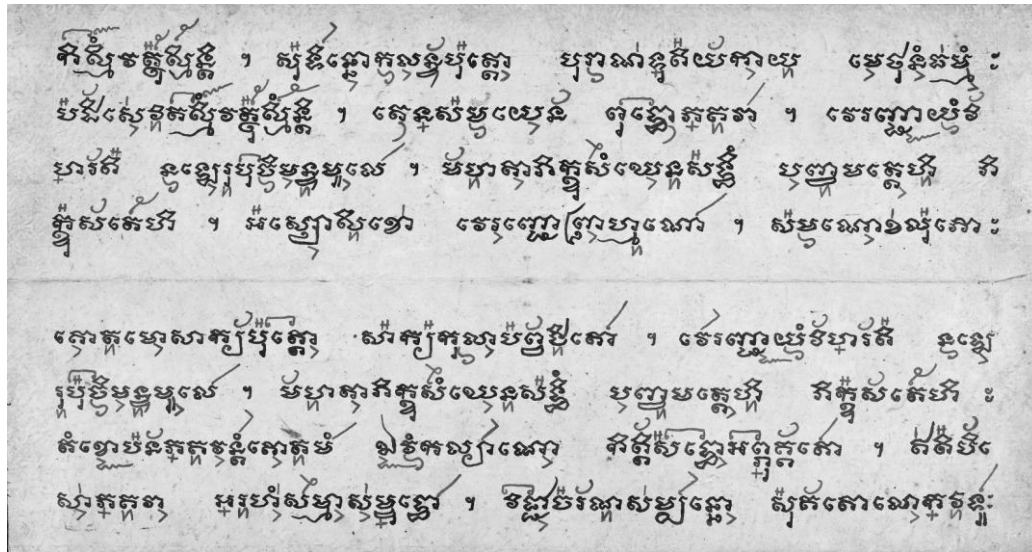 កស្មិំវត្ថុស្មិំន្តិ ។ សុទិន្នោកលន្ទបុត្តោ បុរាណទុតិយិកាយ មេថុនំធម្មំ ៈ
បដិសេវិតស្មិំវត្ថុស្មិំន្តិ ។ តេនសមយេន ពុទ្ធោភគវា ។ វេរញ្ជាយំវិ
ហរតិ នឡេរុបុចិមន្ទមូលេ ។ មហតាភិក្ខុសំឃេនសទ្ធិំ បញ្ចមត្តេហិ ភិ
ក្ខុសតេហិ ។ អស្សោសិខោ វេរញ្ជោព្រាហ្មណោ ។ សមណោខលុភោ ៈ
គោតមោសាក្យបុត្តោ សាក្យកុលាបព្វជិតោ ។ វេរញ្ជាយំវិហរតិ នឡេ
រុបុចិមន្ទមូលេ ។ មហតាភិក្ខុសំឃេនសទ្ធិំ បញ្ចមត្តេហិ ភិក្ខុសតេហិ ៈ
តំខោបនភគវន្តំគោតមំ ឯវំកល្យាណោ កិត្តិសទ្ទោអព្ភុគ្គតោ ។ ឥតិបិ
សោភគវា អរហំសម្មាសម្ពុទ្ធោ ។ វិជ្ជាចរណសម្បន្នោ សុគតោលោកវិទូ ៈ